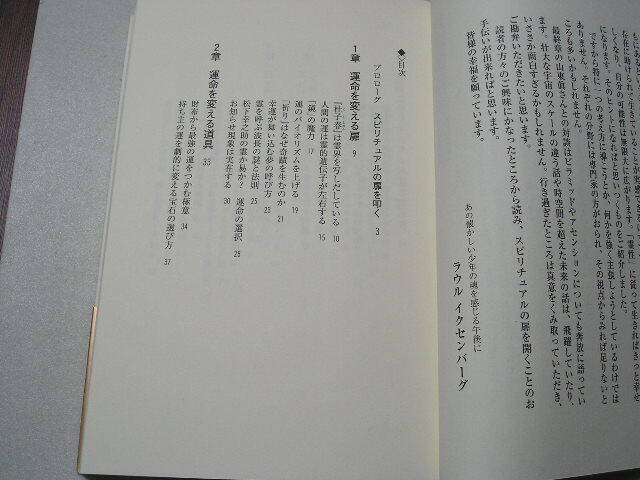 もにあり
在に助けられ、生きていることが実感できてくると
しくなり、自分の可能性は無限大に広がります。「霊性」に従って生きればきっと幸せ
になります。そのヒントになればと思いつくものをご紹介しました。
ですから特に一つの考え方に導こうとか、何かを強く主張しようとしているわけでは
ありません。それぞれの分野には専門家の方がおられ、その視点からみれば足りないと
ころも多いかもしれません。
最終章の山東眞さんとの対談はピラミッドやアセンションについても奔放に語ってい
ます。壮大な宇宙のスケールの違う話や時空間を超えた未来の話は、飛躍していたり、
いささか面白すぎるかもしれません。行き過ぎたところは真意をくみ取っていただき、
ご勘弁いただきたいと思います。
読者の方々のご興味にかなったところから読み、スピリチュアルの扉を開くことのお
手伝いが出来ればと思います。
皆様の幸福を願っています。
あの懐かしい少年の魂を感じる午後に
ラウル イクセンバーグ
目次
プロローグ スピリチュアルの扉を叩く 3
1章 運命を変える扉 9
「杜子春」は霊界を写しだしている 10
人間の運は霊的遺伝子が左右する 15
「鏡」の魔力 17
運のバイオリズムを上げる 19
「祈り」はなぜ奇蹟を生むのか 21
幸運が舞い込む夢の呼び方 23
霊を呼ぶ波長の謎と法則 25
松下幸之助の霊か易か? 運命の選択 28
お知らせ現象は実在する 30
2章 運命を変える道具 33
財布から最強の運をつかむ極意 34
持ち主の運を劇的に変える宝石の選び方 37